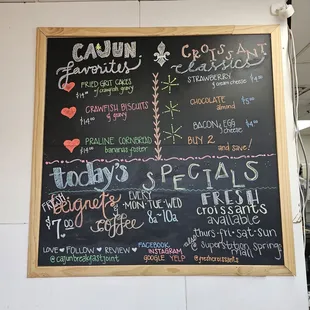 CAJUN
Favorites
FRIED GRIT CAKES
w/ crawfish gravy
$14.99
CRAWFISH BISCUITS
& gravy
$14.99
PRALINE CORNBREAD
bananas foster
$14.99
CROISSANT
Classics
STRAWBERRY $4
w/ cream cheese
CHOCOLATE $5
almond
BACON & EGG $4
cheese
BUY 2
and save!
today's SPECIALS
FRESH
Beignets
$7.00
& coffee
EVERY
MON-TUE-WED
8a-10a
FRESH
croissants
available
thurs-fri-sat-sun
@ superstition springs
mall
LOVE FOLLOW REVIEW
@cajunbreakfastjoint
FACEBOOK
INSTAGRAM
GOOGLE YELP
@freshcroissants